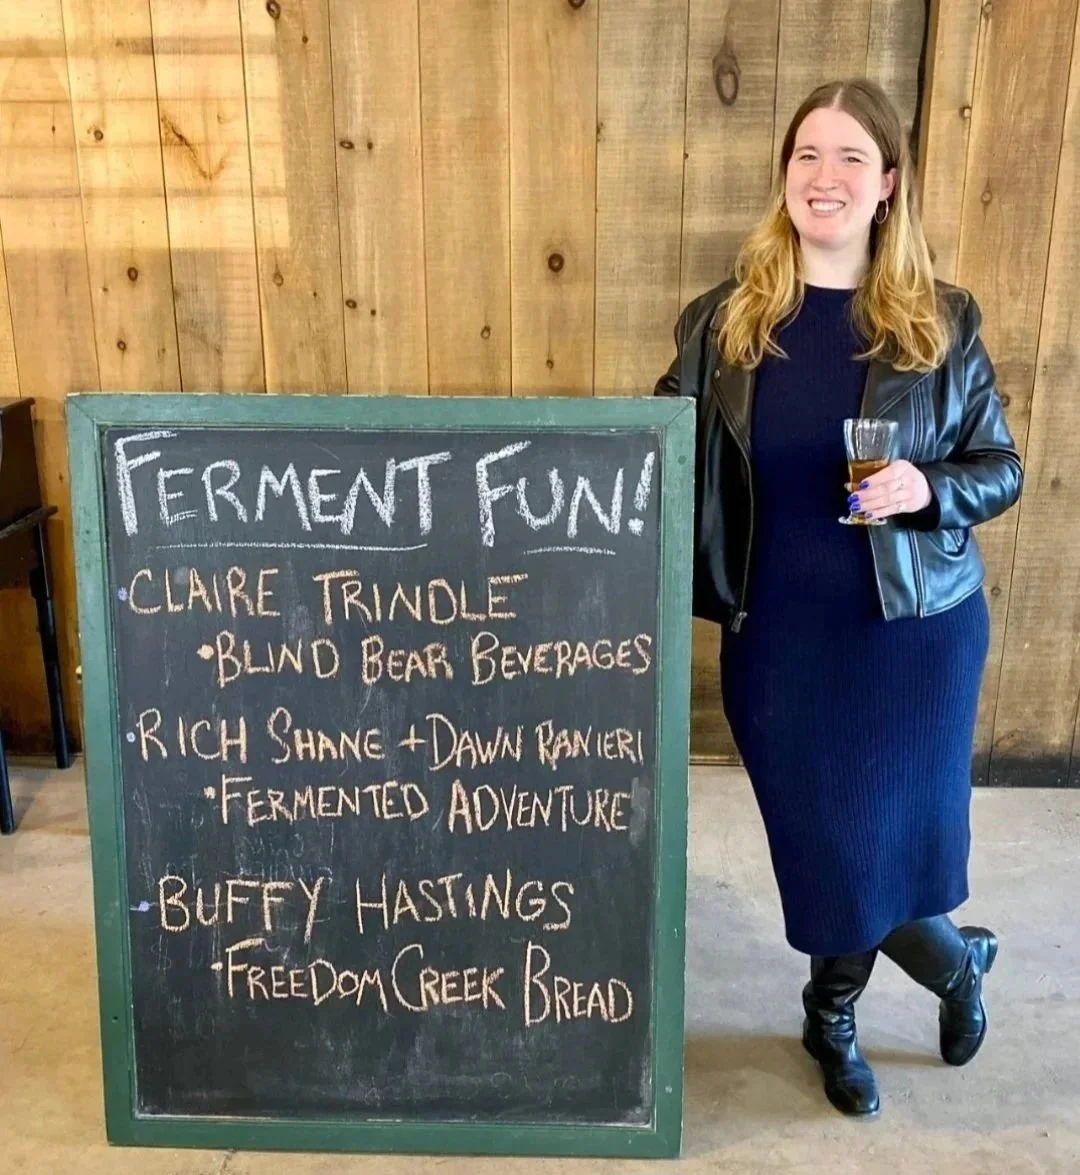 FERMENT FUN!
CLAIRE TRINDLE
• BLIND BEAR BEVERAGES
• RICH SHANE + DAWN RANIERI
• FERMENTED ADVENTURE
BUFFY HASTINGS
• FREEDOM CREEK BREAD